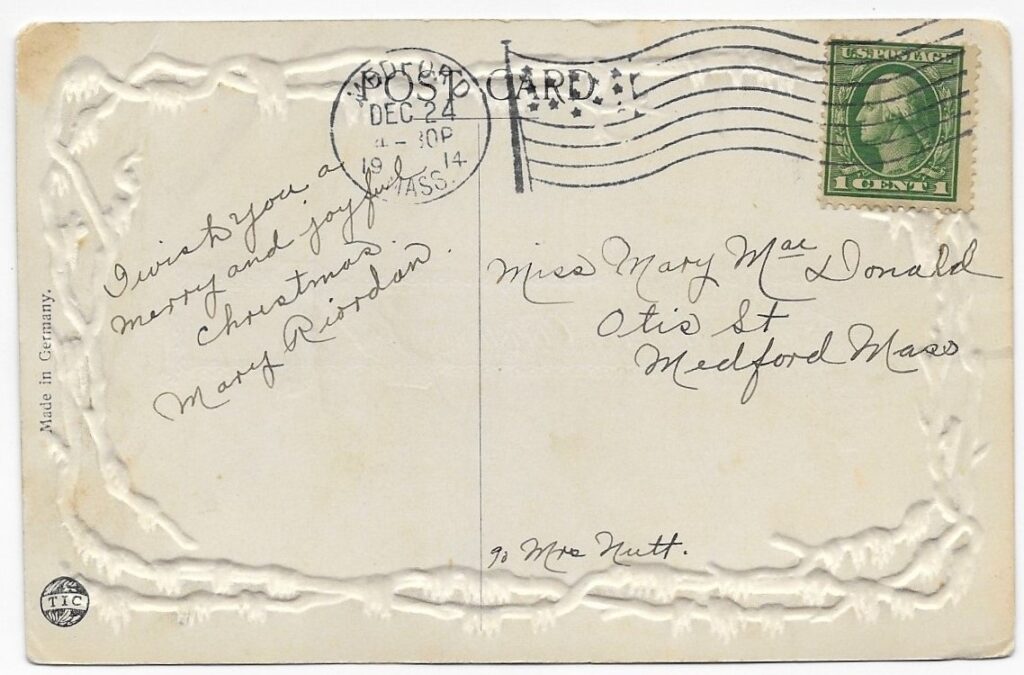 POST CARD
MEDFORD
DEC 24
-30P
19 14
MASS.
U.S. POSTAGE
1 CENT 1
I wish you a
merry and joyful
Christmas.
Mary Riordan.
Miss Mary Mac Donald
Otis St
Medford Mass
% Mrs Nutt.
Made in Germany.
TIC